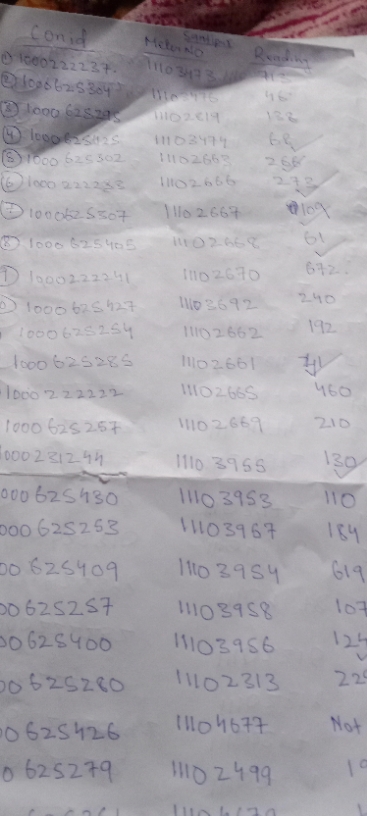 Con id Meter No Reading
① 1000222237. 11103473 713
② 1000625304 11103475 46
③ 1000625295 11102819 138
④ 1000625425 11103474 68
⑤ 1000625302 11102663 266
⑥ 1000222233 11102666 273
⑦ 1000625307 11102667 109
⑧ 1000625405 11102668 61
⑨ 1000222241 11102670 672.
1000625427 11103692 240
1000625254 11102662 192
1000625285 11102661 41
1000222222 11102665 460
1000625267 11102669 210
1000231244 11103955 130
000625430 11103953 110
000625253 11103967 184
00625409 11103954 619
00625257 11103958 107
00625400 11103956 124
00625280 11102313 22
00625426 11104677 Not
0625279 11102499 19